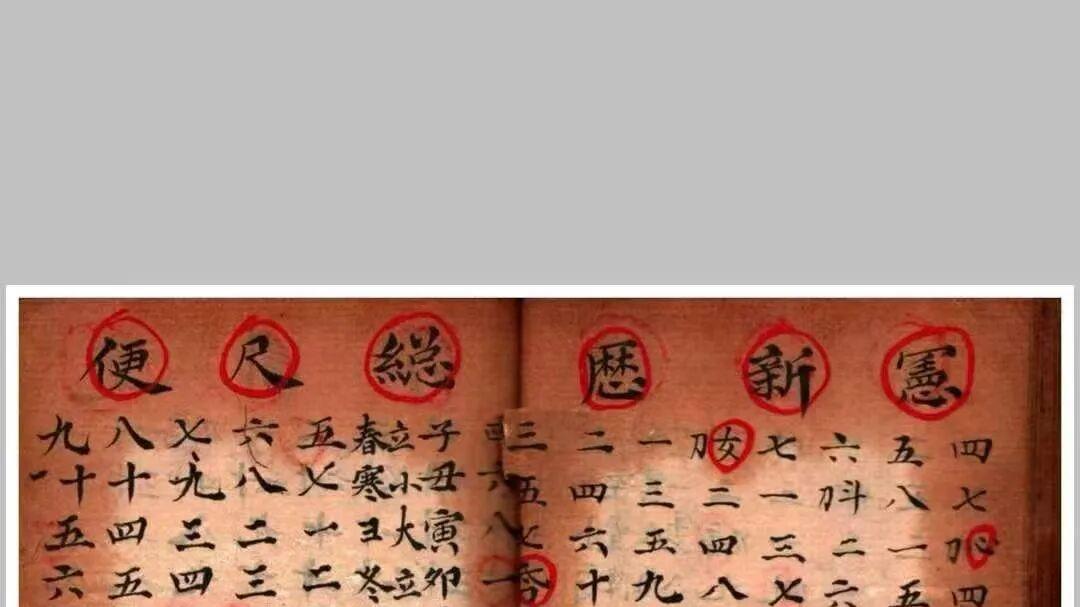 憲新歴総尺便
四七四
五八一五
六斗二六
七一三七
女二四八
一三五九
二四六十
三五七
六八一
子丑寅卯
立小大立
春寒ヨ冬
五七一二
六八二三
七九三四
八十四五
九十五六